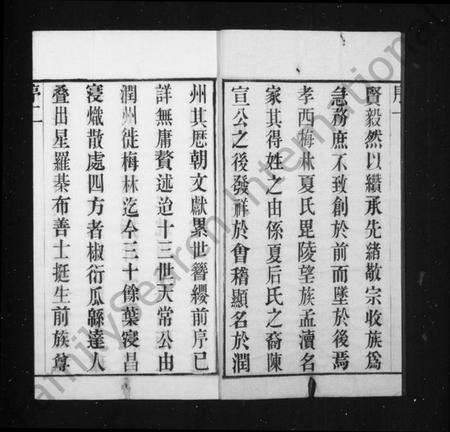 序一
賢毅然以纘承先緒敬宗收族爲
急務庶不致創於前而墜於後焉
孝西梅林夏氏毘陵望族孟瀆名
家其得姓之由係夏后氏之裔陳
宣公之後發祥於會稽顯名於潤
州其歷朝文獻累世簪纓前序已
詳無庸贅述迨十三世天常公由
潤州徙梅林迄今三十餘葉寖昌
寖熾散處四方者椒衍瓜緜達人
叠出星羅棊布善士挺生前族尊
序二
FamilySearch International